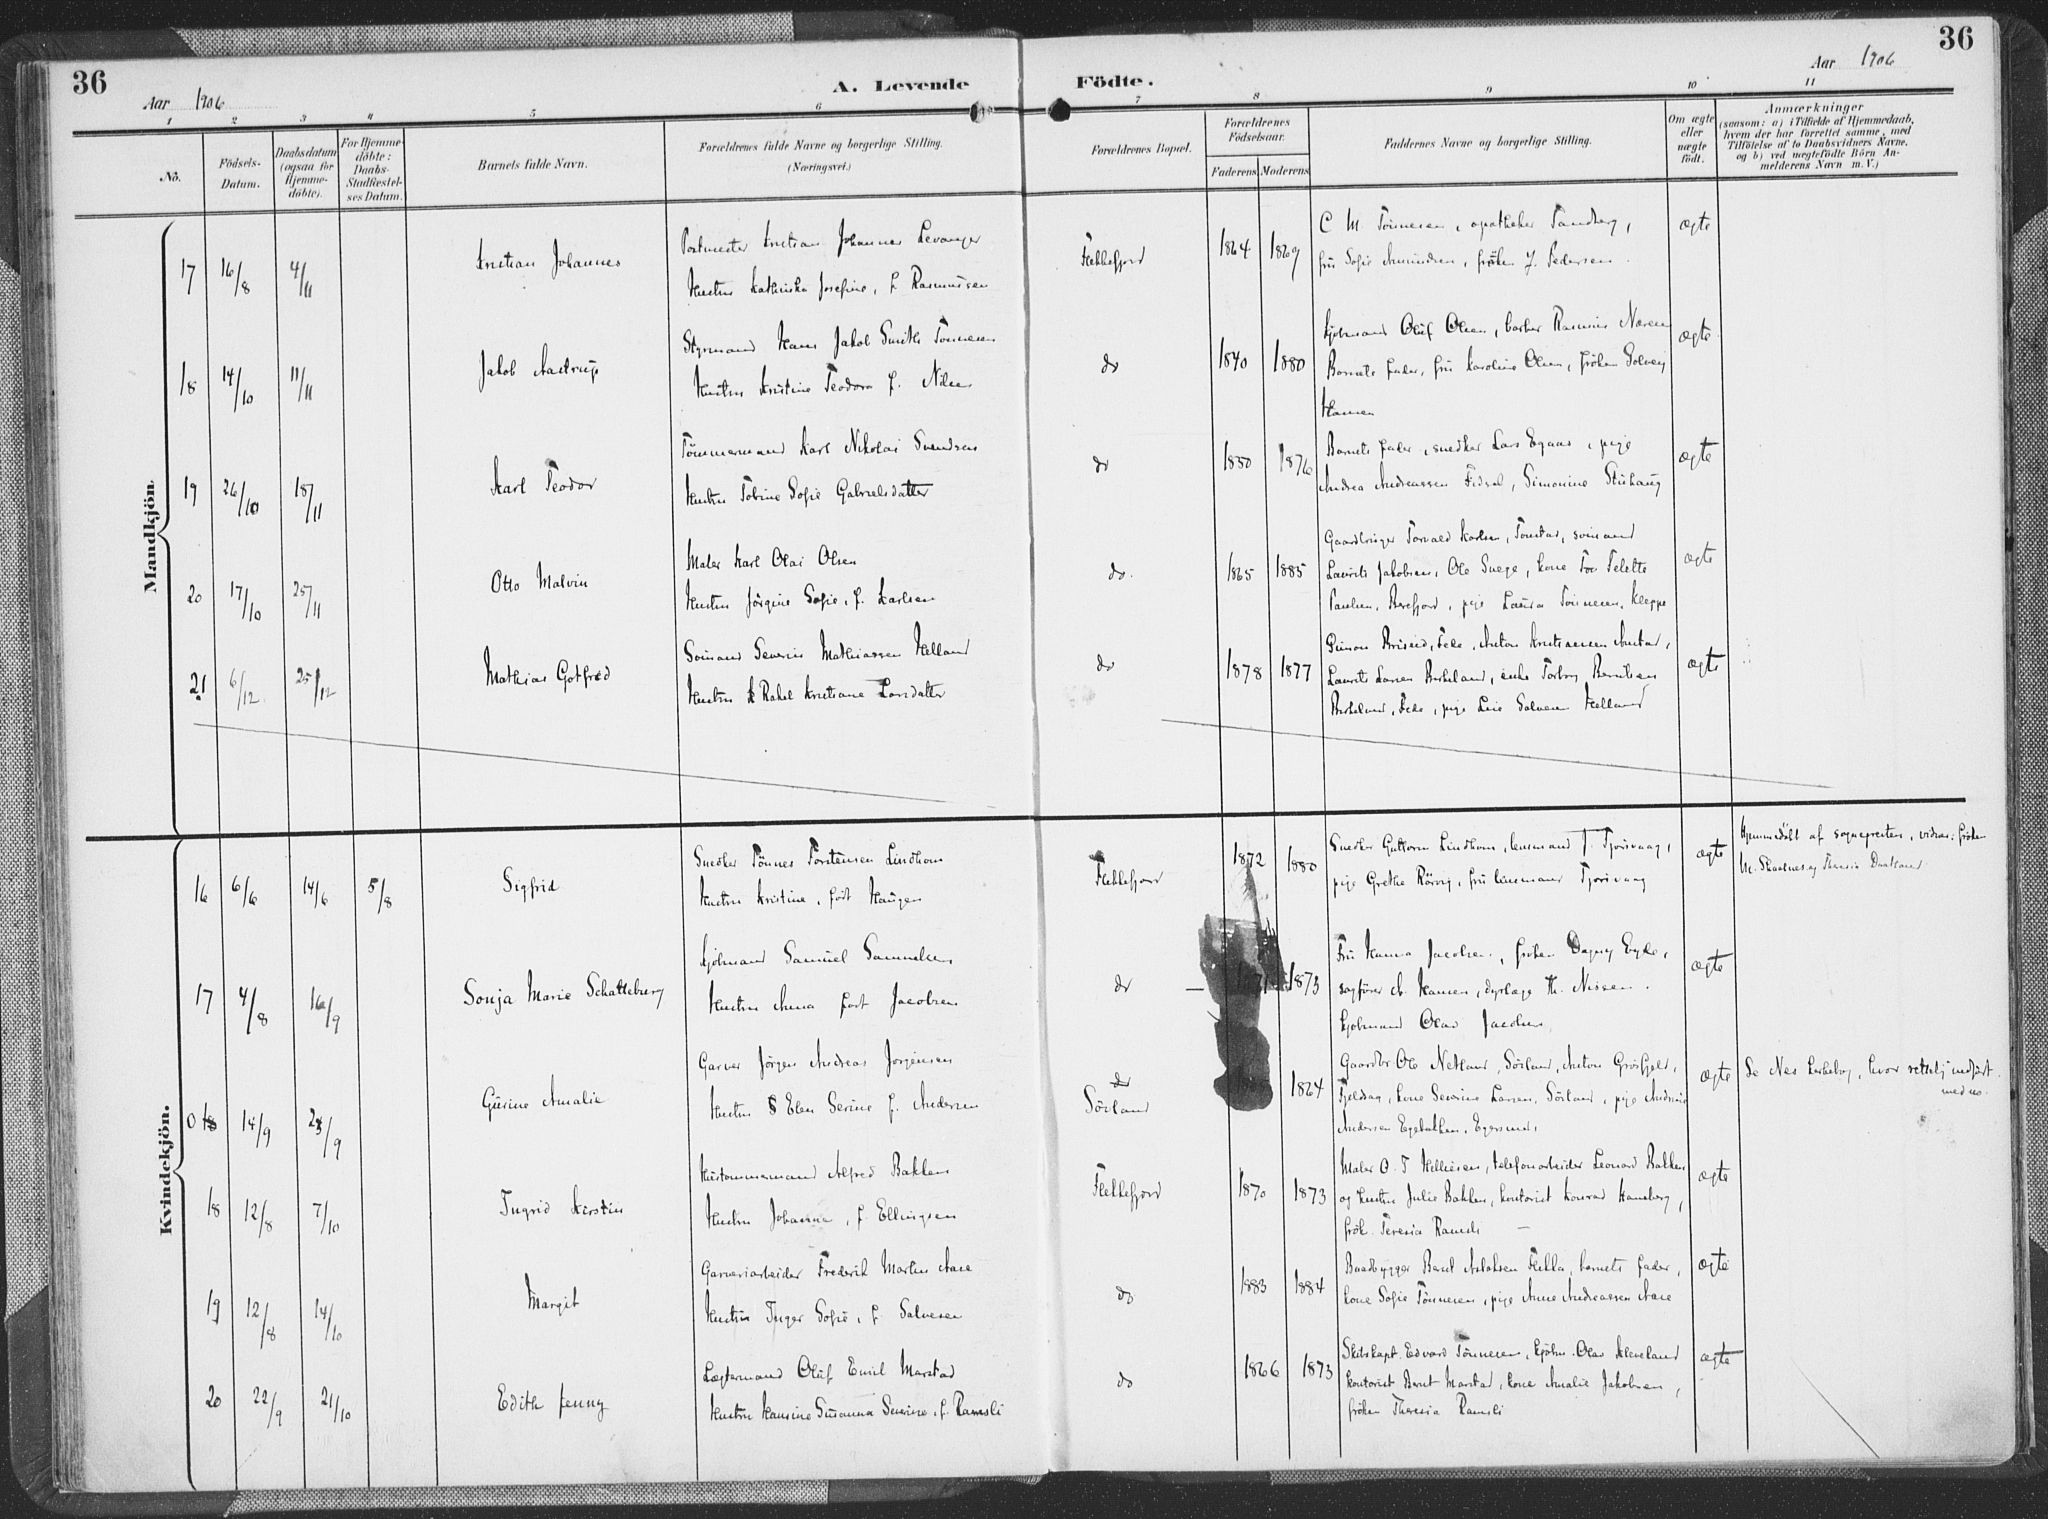 36
36
Aar 1906
A. Levende Födte.
Aar 1906
1 2 3 4 5 6 7 8 9 10 11
No.
Födsels-Datum.
Daabsdatum (ogsaa for Hjemmedöbte).
For Hjemmedöbte: Daabs-Stadfæstelses Datum.
Barnets fulde Navn.
Forældrenes fulde Navne og borgerlige Stilling.
(Næringsvei.)
Forældrenes Bopæl.
Forældrenes Födselsaar.
Faderens Moderens
Faddernes Navne og borgerlige Stilling.
Om ægte eller uægte födt.
Anmærkninger
(saasom: a) i Tilfælde af Hjemmedaab,
hvem der har forrettet samme, med
Tilföielse af to Daabsvidners Navne,
og b) ved uægtefödte Börn An-
melderens Navn m. V.)
Mandkjön.
17 16/8 4/11 Kristian Johannes
Postmester Kristian Johannes Levanger
Hustru Kathinka Josefine, f. Rasmussen
Flekkefjord 1864 1869
C M Tönnesen, apotheker Sandberg,
fru Sofie Amundsen, fröken J. Pedersen.
ægte
18 14/10 11/11 Jakob Aastrup
Styrmand Hans Jakob Smith Tönnesen
Hustru Kristine Teodora f. Nilsen
do 1840 1880
Kjöbmand Oluf Olsen, barber Rasmus Noren
Barnets fader, fru Karoline Olsen, fröken Solveig
Hansen
ægte
19 26/10 18/11 Karl Teodor
Tömmermand Karl Nikolai Svendsen
Hustru Tobine Sofie Gabrielsdatter
do 1850 1876
Barnets fader, snedker Lars Egaas, pige
Andrea Andreassen Fidsel, Simonine Stuhaug
ægte
20 17/10 25/11 Otto Malvin
Maler Karl Olai Olsen
Hustru Jörgine Sofie, f. Karlsen
do. 1865 1885
Gaardbruger Torvald Karlsen, Tomstad, sömand
Laurits Jakobsen, Ole Svege, kone Tea
Paulsen, pige Laura Tönnesen, Kleppe
ægte
21 6/12 25/12 Mathias Gotfred
Sömand Severin Mathiassen Helland
Hustru Rakel Kristiane Larsdatter
do 1878 1877
Simon Fede, Anton Kristiansen
Laurits Larsen Birkeland, enke Torborg Berntsen
Birkeland, Fede, pige Lise Salvesen Helland
ægte
Kvindekjön.
16 6/6 14/6 5/8 Sigfrid
Snedker Tönnes Torstensen Lindhom
Hustru Kristine, født Haugen
Flekkefjord 1872 1880
Snedker Guttorm Lindhom, lensmand T Tjorsvaag,
pige Grethe Rörvig, fru lensmand Tjorsvaag
ægte
Hjemmedöbt af sogneprесten, vidner: fröken
M. Skaalnes og Theresia Daatland
17 4/8 16/9 Sonja Marie Schatteburg
Kjöbmand Samuel Samuelsen
Hustru Anna født Jacobsen
do 1873
Fru Hanna Jacobsen, fröken Dagny Eyde,
sagförer A. Hansen, dyrlæge Th. Nissen.
kjöbmand Olav Jacobsen
ægte
0 18 14/9 23/9 Gurine Amalie
Garver Jörgen Andreas Jorgensen
Hustru Elen Serine f. Andersen
do
Sörland
1864
Gaardbr Ole Netland, Sörland, Anton
kone Severine Larsen, Sörland, pige
Andersen Egebakken, Egersund.
ægte
Se Nes kirkebog, hvor rettelig indført
med no.
18 12/8 7/10 Ingrid Kirstin
Hustømmermand Alfred Bakken
Hustru Johanna, f Ellingsen
Flekkefjord 1870 1873
Maler O. T Helliesen, telefonarbeider Leonard Bakken
og hustru Julie Bakken, kontorist Konrad Hamberg,
frök. Teresia Ramsli
ægte
19 12/8 14/10 Margit
Garveriarbeider Frederik Martin Aase
Hustru Inger Sofie, f. Salvesen
do 1883 1884
Baadbygger Beret Aslaksen Flikka, barnets fader,
kone Sofie Tönnesen, pige Anne Andreassen Aase
ægte
20 22/9 21/10 Edith Jenny
Lægtermand Oluf Emil Marstad
Hustru Hansine Susanna Severine, f. Ramsli
do 1866 1873
Skibskapt. Edvard Tönnesen, kjöbm. Olav Kleveland
kontorist Bernt Marstad, kone Amalie Jakobsen,
fröken Theresia Ramsli
ægte